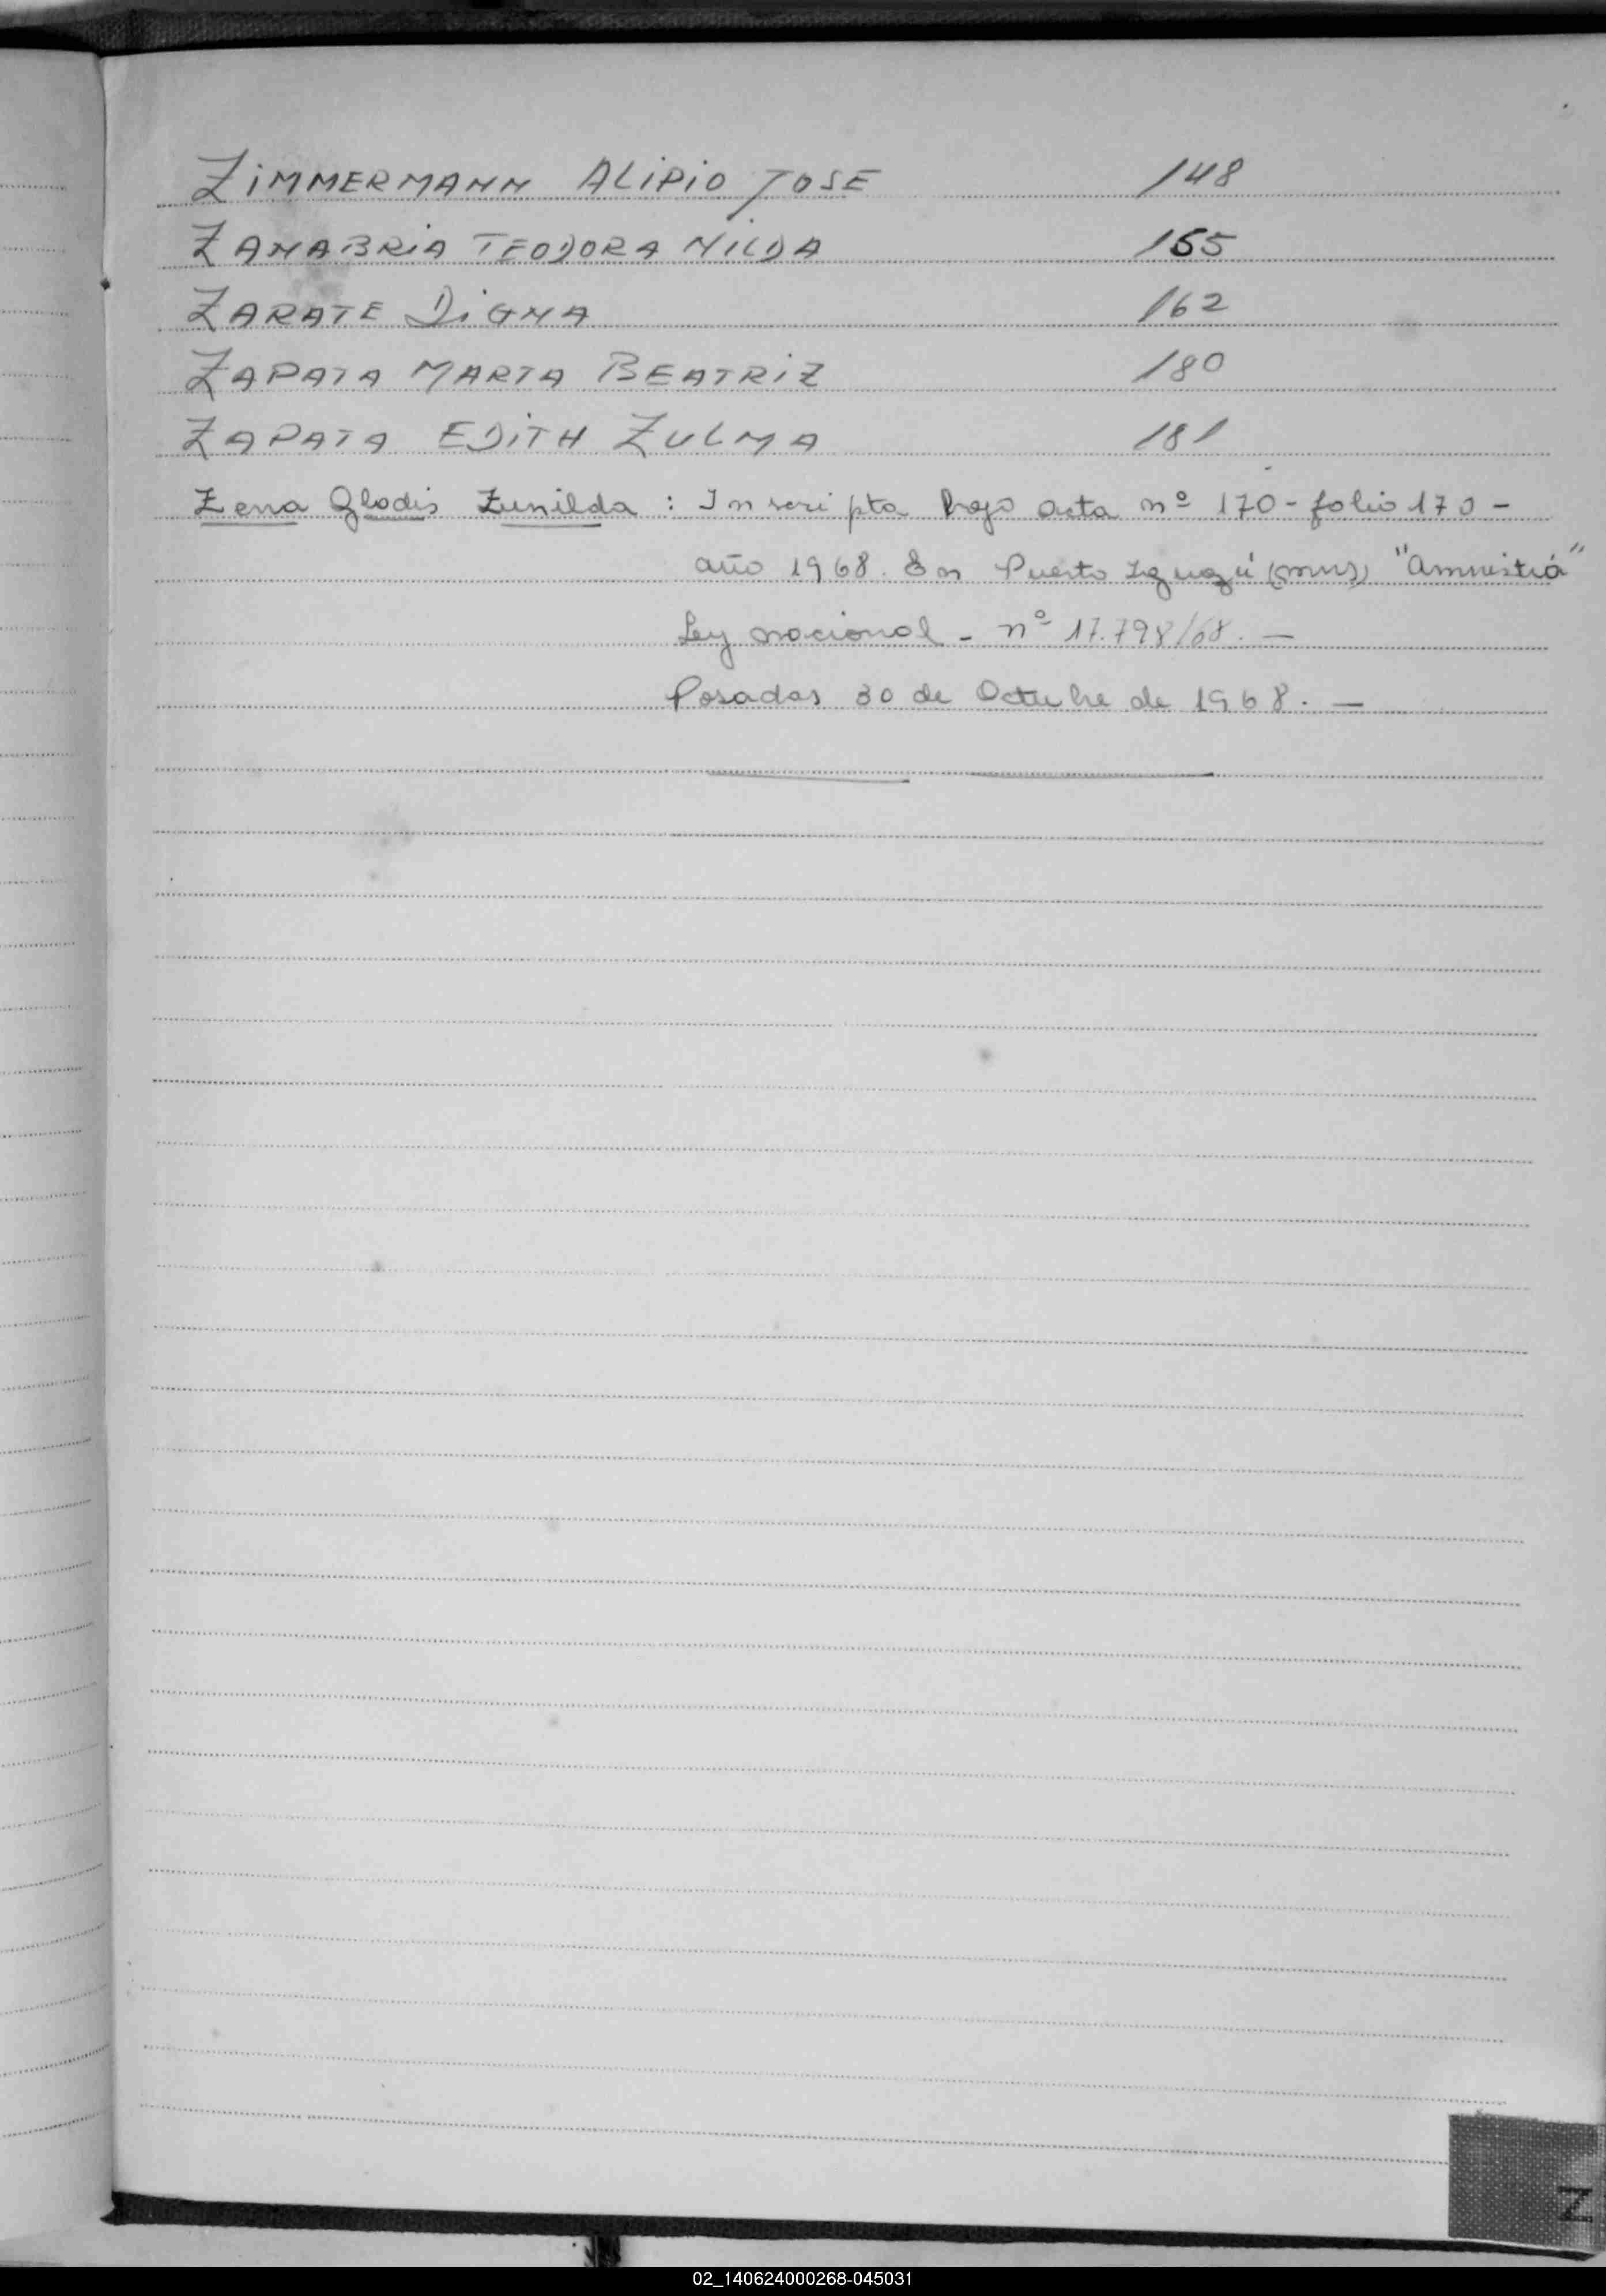 ZIMMERMANN ALIPIO JOSE 148
ZANABRIA TEODORA NILDA 155
ZARATE DIGNA 162
ZAPATA MARTA BEATRIZ 180
ZAPATA EDITH ZULMA 181
Zena Gladis Zunilda : Inscripta bajo acta nº 170 - folio 170 -
año 1968. En Puerto Iguazú (mns) "Amnistiá"
Ley nacional - nº 17.798/68. —
Posadas 30 de Octubre de 1968. —
Z
02_140624000268-045031